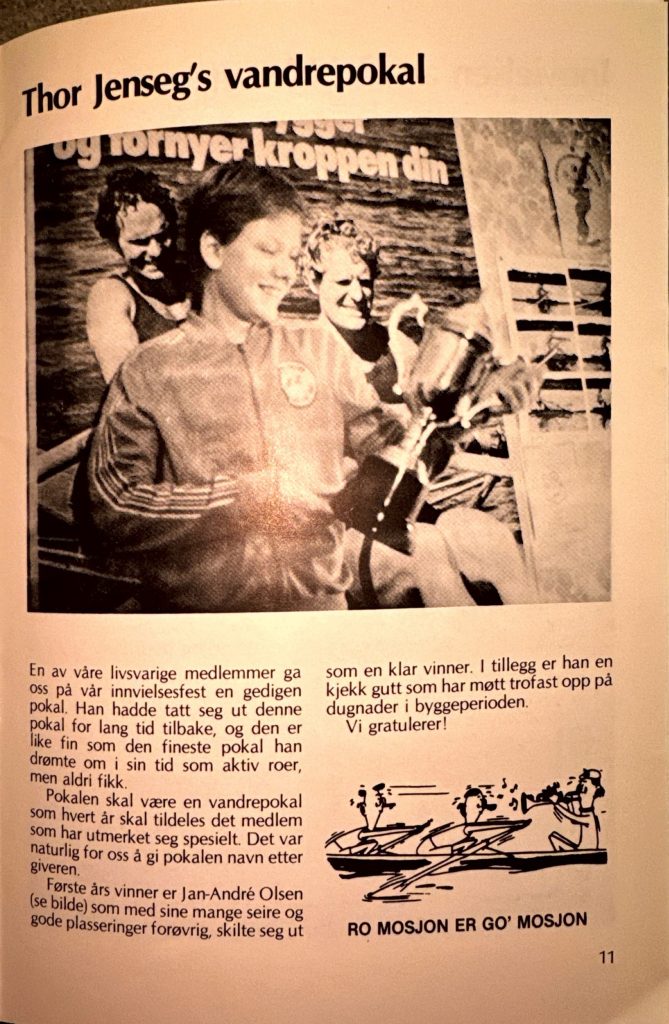 Thor Jenseg's vandrepokal
og fornyer kroppen din
En av våre livsvarige medlemmer ga
oss på vår innvielsesfest en gedigen
pokal. Han hadde tatt seg ut denne
pokal for lang tid tilbake, og den er
like fin som den fineste pokal han
drømte om i sin tid som aktiv roer,
men aldri fikk.
Pokalen skal være en vandrepokal
som hvert år skal tildeles det medlem
som har utmerket seg spesielt. Det var
naturlig for oss å gi pokalen navn etter
giveren.
Første års vinner er Jan-André Olsen
(se bilde) som med sine mange seire og
gode plasseringer forøvrig, skilte seg ut
som en klar vinner. I tillegg er han en
kjekk gutt som har møtt trofast opp på
dugnader i byggeperioden.
Vi gratulerer!
RO MOSJON ER GO' MOSJON
11